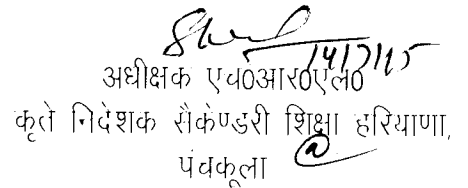 14/7/15
अधीक्षक एच0आर0एल0
कृते निदेशक सैकेण्डरी शिक्षा हरियाणा,
पंचकूला